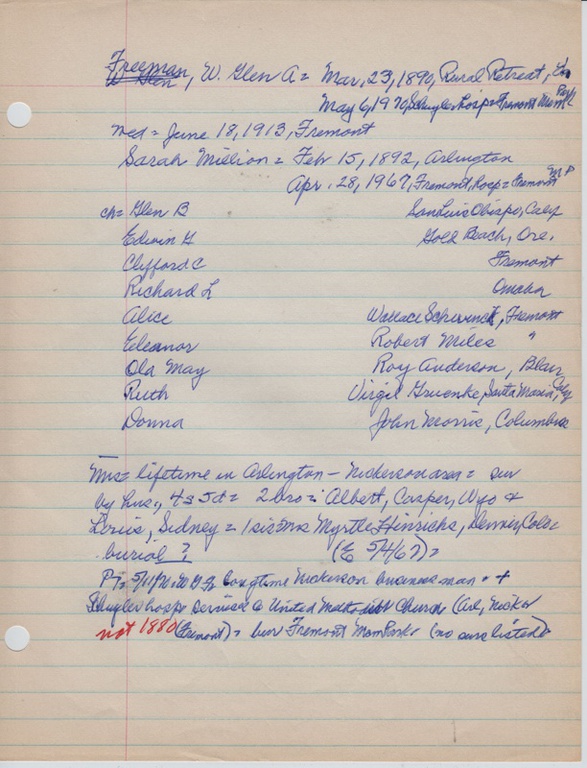 Freeman, W. Glen A = Mar, 23, 1890, Rural Retreat,
W Glen
May 6, 1970, Schuyler hosp = Fremont Mem Park
med = June 18, 1913, Fremont
Sarah Million = Feb 15, 1892, Arlington
Apr. 28, 1967, Fremont, hosp = Fremont M P
ch = Glen B San Luis Obispo, Calif
Edwin G Gold Beach, Ore.
Clifford C Fremont
Richard L Omaha
Alice Wallace Schwinck, Fremont
Eleanor Robert Miles "
Ola May Roy Anderson, Blair
Ruth Virgil Gruenke, Santa Maria, Calif
Donna John Morris, Columbus
Mrs = lifetime in Arlington - Nickerson area = sur
by hus., 4s 5d = 2 bro = Albert, Casper, Wyo &
Louis, Sidney = 1 sis = Mrs Myrtle Hinrichs, Denver, Colo =
burial ? (E 5/4/67) =
5/11/70 = longtime Nickerson business man = +
Schuyler hosp services @ United Methodist Church (Arl, Nicker
not 1880 (Fremont) = bur Fremont Mem Park (no surs listed)